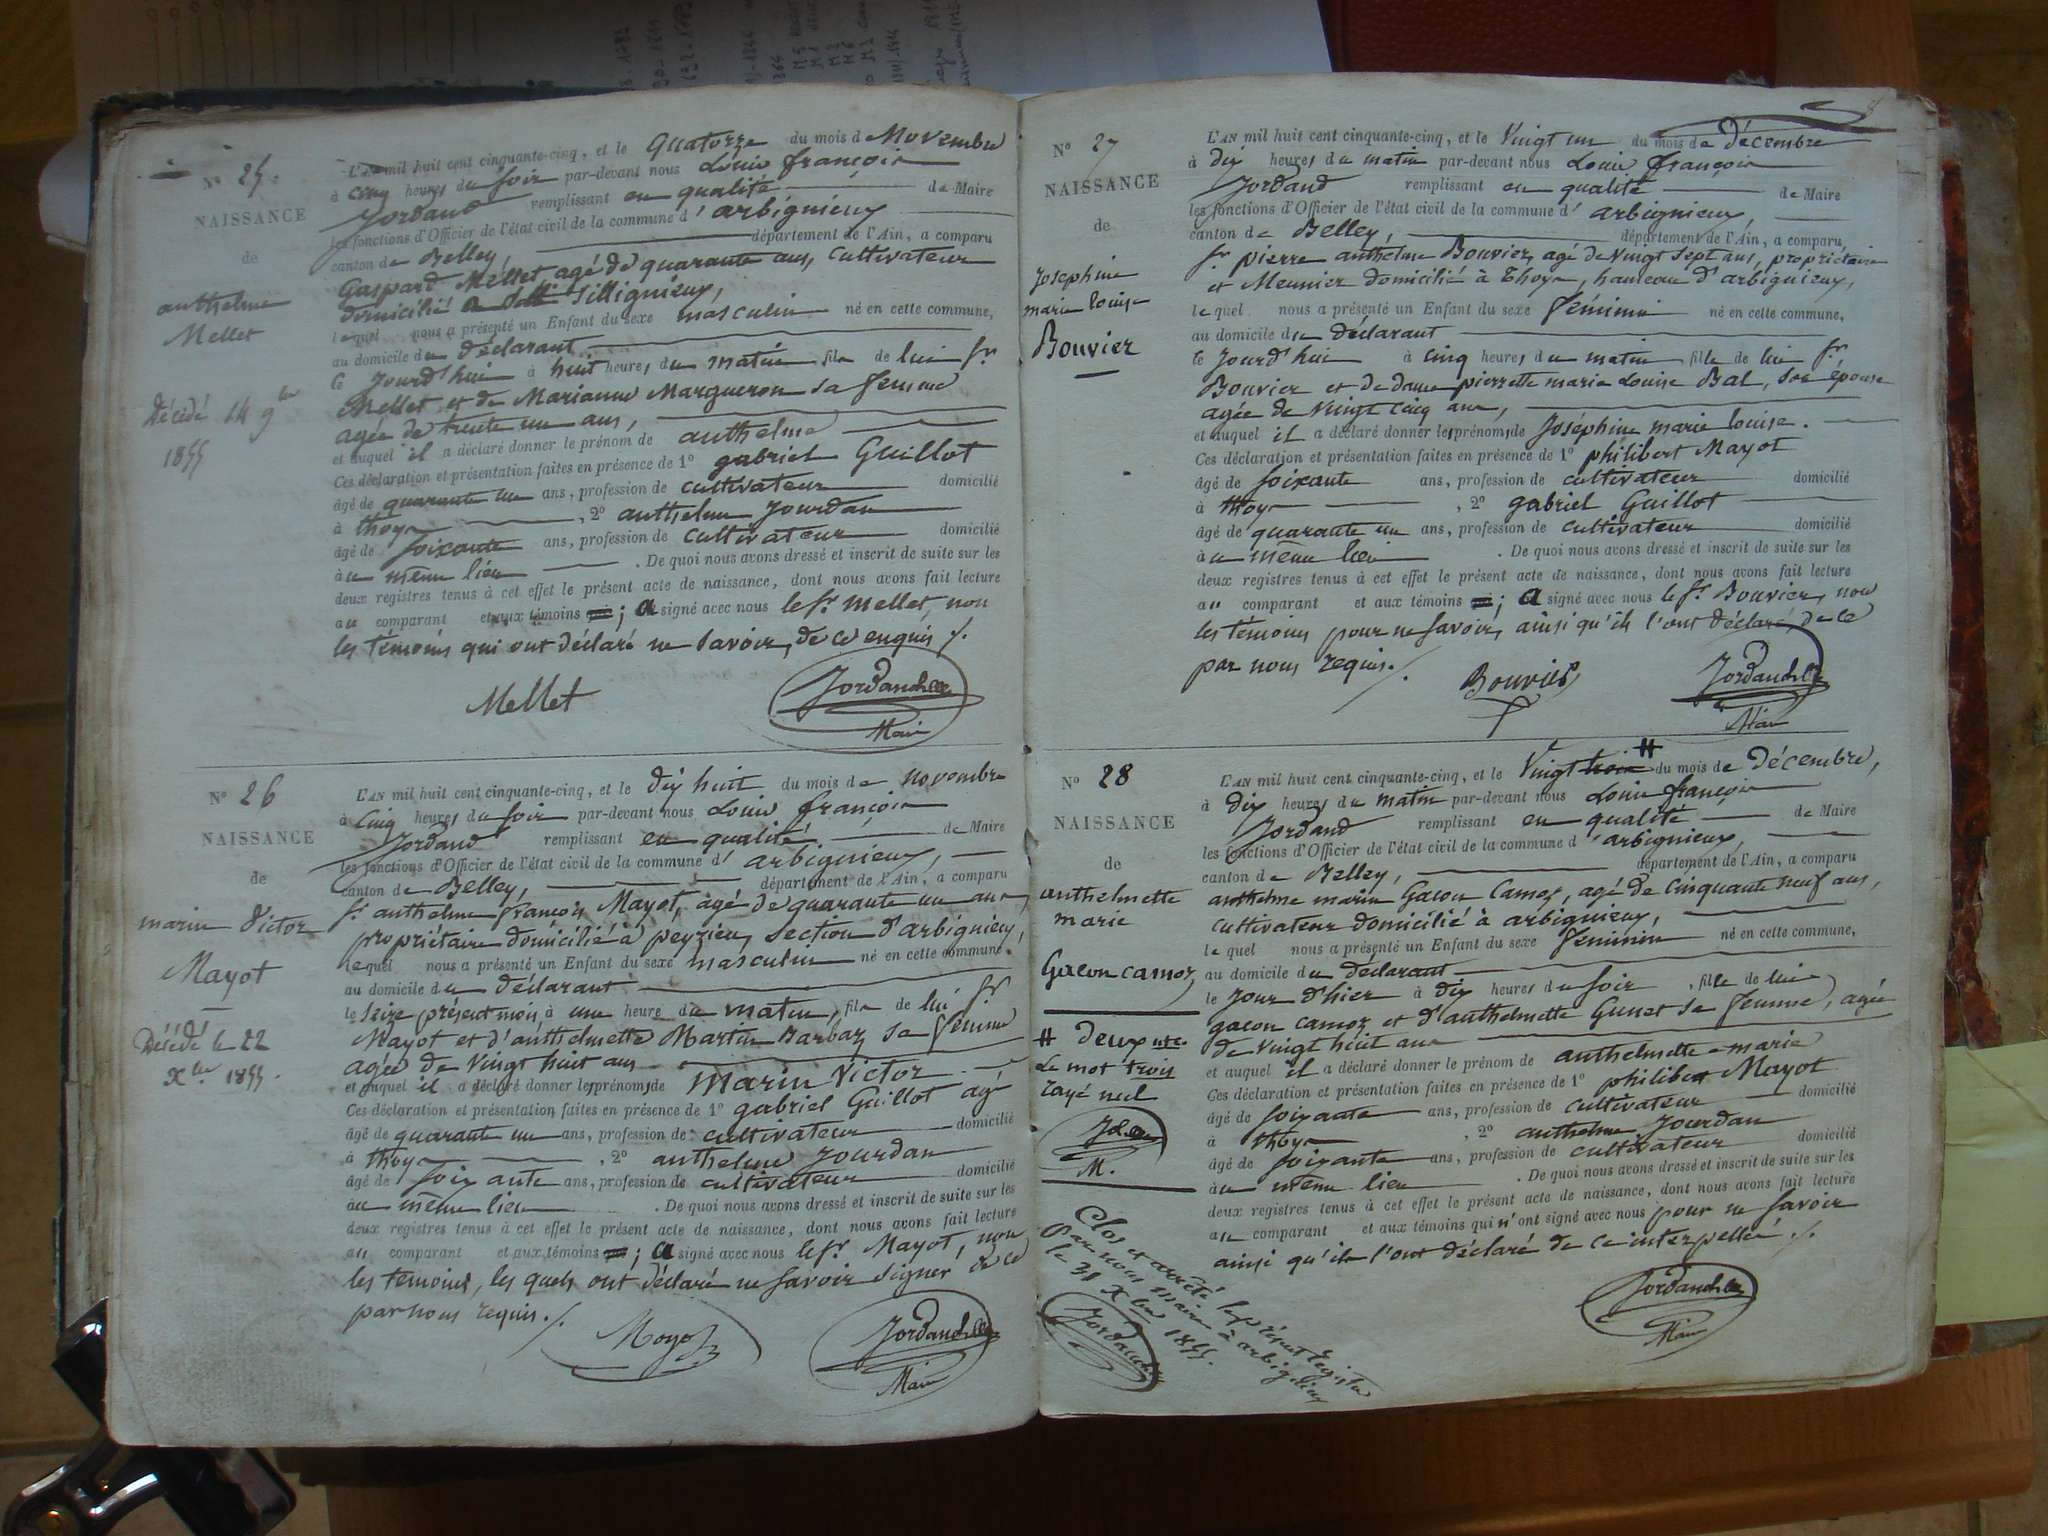 N° 25.
NAISSANCE
de
anthelme
Mellet
Décédé 14 9bre
1855
L'AN mil huit cent cinquante-cinq, et le Quatorze du mois de Novembre
à cinq heures du soir par-devant nous Louis françois
Jordand remplissant en qualité de Maire
les fonctions d'Officier de l'état civil de la commune d' arbignieux
canton de Belley, département de l'Ain, a comparu
Gaspard Mellet agé de quarante ans, cultivateur
domicilié à Sillignieux,
lequel nous a présenté un Enfant du sexe masculin né en cette commune,
au domicile du déclarant
le jourd'hui à huit heures du matin fils de lui Sr
Mellet et de Marianne Margueron sa femme
agée de trente un ans,
et auquel il a déclaré donner le prénom de anthelme
Ces déclaration et présentation faites en présence de 1° gabriel Guillot
âgé de quarante un ans, profession de cultivateur domicilié
à thoys , 2° anthelme Jourdan
âgé de soixante ans, profession de cultivateur domicilié
au même lieu . De quoi nous avons dressé et inscrit de suite sur les
deux registres tenus à cet effet le présent acte de naissance, dont nous avons fait lecture
au comparant et aux témoins ; a signé avec nous le Sr Mellet, non
les témoins qui ont déclaré ne savoir, de ce enquis ./.
Mellet
Jordand
Maire
N° 26
NAISSANCE
de
marin Victor
Mayot
Décédé le 22
Xbre 1855.
L'AN mil huit cent cinquante-cinq, et le dix huit du mois de novembre
à cinq heures du soir par-devant nous Louis françois
Jordand remplissant en qualité de Maire
les fonctions d'Officier de l'état civil de la commune d' arbignieux,
canton de Belley, département de l'Ain, a comparu
Sr anthelme françois Mayot, agé de quarante un ans,
propriétaire domicilié à peyzieu, section d'arbignieu,
lequel nous a présenté un Enfant du sexe masculin né en cette commune.
au domicile du déclarant
le seize présent mois, à une heure du matin, fils de lui Sr
Mayot et d'anthelmette Martin Barbaz sa femme
agée de vingt huit ans
et auquel il a déclaré donner les prénoms de Marin Victor
Ces déclaration et présentation faites en présence de 1° gabriel Guillot agé
âgé de quarante un ans, profession de cultivateur domicilié
à thoys , 2° anthelme Jourdan
âgé de soixante ans, profession de cultivateur domicilié
au même lieu . De quoi nous avons dressé et inscrit de suite sur les
deux registres tenus à cet effet le présent acte de naissance, dont nous avons fait lecture
au comparant et aux témoins ; a signé avec nous le Sr Mayot, non
les témoins, les quels ont déclaré ne savoir signer de ce
par nous requis ./.
Mayot
Jordand
Maire
N° 27
NAISSANCE
de
Josephine
marie louise
Bouvier
L'AN mil huit cent cinquante-cinq, et le Vingt un du mois de décembre
à dix heures du matin par-devant nous Louis françois
Jordand remplissant en qualité de Maire
les fonctions d'Officier de l'état civil de la commune d' arbignieux,
canton de Belley, département de l'Ain, a comparu
Sr pierre anthelme Bouvier, agé de vingt sept ans, propriétaire
et Meunier domicilié à Thoys, hameau d'arbignieux,
lequel nous a présenté un Enfant du sexe féminin né en cette commune,
au domicile du déclarant
le jourd'hui à cinq heures du matin fille de lui Sr
Bouvier et de dame pierrette marie Louise Bal, son épouse
agée de vingt cinq ans,
et auquel il a déclaré donner les prénoms de Joséphine marie louise.
Ces déclaration et présentation faites en présence de 1° philibert Mayot
âgé de soixante ans, profession de cultivateur domicilié
à thoys , 2° gabriel Guillot
âgé de quarante un ans, profession de cultivateur domicilié
au même lieu . De quoi nous avons dressé et inscrit de suite sur les
deux registres tenus à cet effet le présent acte de naissance, dont nous avons fait lecture
au comparant et aux témoins ; a signé avec nous le Sr Bouvier, non
les témoins pour ne savoir, ainsi qu'ils l'ont déclaré, de ce
par nous requis ./.
Bouvier
Jordand
Maire
N° 28
NAISSANCE
de
anthelmette
marie
Gacon camoz
# deux
Le mot trois
rayé nul
M.
Clos et arrêté le présent registre
Par nous Maire à arbignieux
le 31 Xbre 1855.
Jordand
L'AN mil huit cent cinquante-cinq, et le Vingt trois # du mois de décembre,
à dix heures du matin par-devant nous Louis françois
Jordand remplissant en qualité de Maire
les fonctions d'Officier de l'état civil de la commune d' arbignieux,
canton de Belley, département de l'Ain, a comparu
anthelme marin Gacon Camoz, agé de cinquante neuf ans,
cultivateur domicilié à arbignieux,
lequel nous a présenté un Enfant du sexe féminin né en cette commune,
au domicile du déclarant
le jour d'hier à dix heures du soir , fille de lui
gacon camoz et d'anthelmette Gunet sa femme, agée
de vingt huit ans
et auquel il a déclaré donner le prénom de anthelmette marie
Ces déclaration et présentation faites en présence de 1° philibert Mayot
âgé de soixante ans, profession de cultivateur domicilié
à thoys , 2° anthelme Jourdan
âgé de soixante ans, profession de cultivateur domicilié
au même lieu . De quoi nous avons dressé et inscrit de suite sur les
deux registres tenus à cet effet le présent acte de naissance, dont nous avons fait lecture
au comparant et aux témoins qui n'ont signé avec nous pour ne savoir
ainsi qu'ils l'ont déclaré de ce interpellés ./.
Jordand
Maire